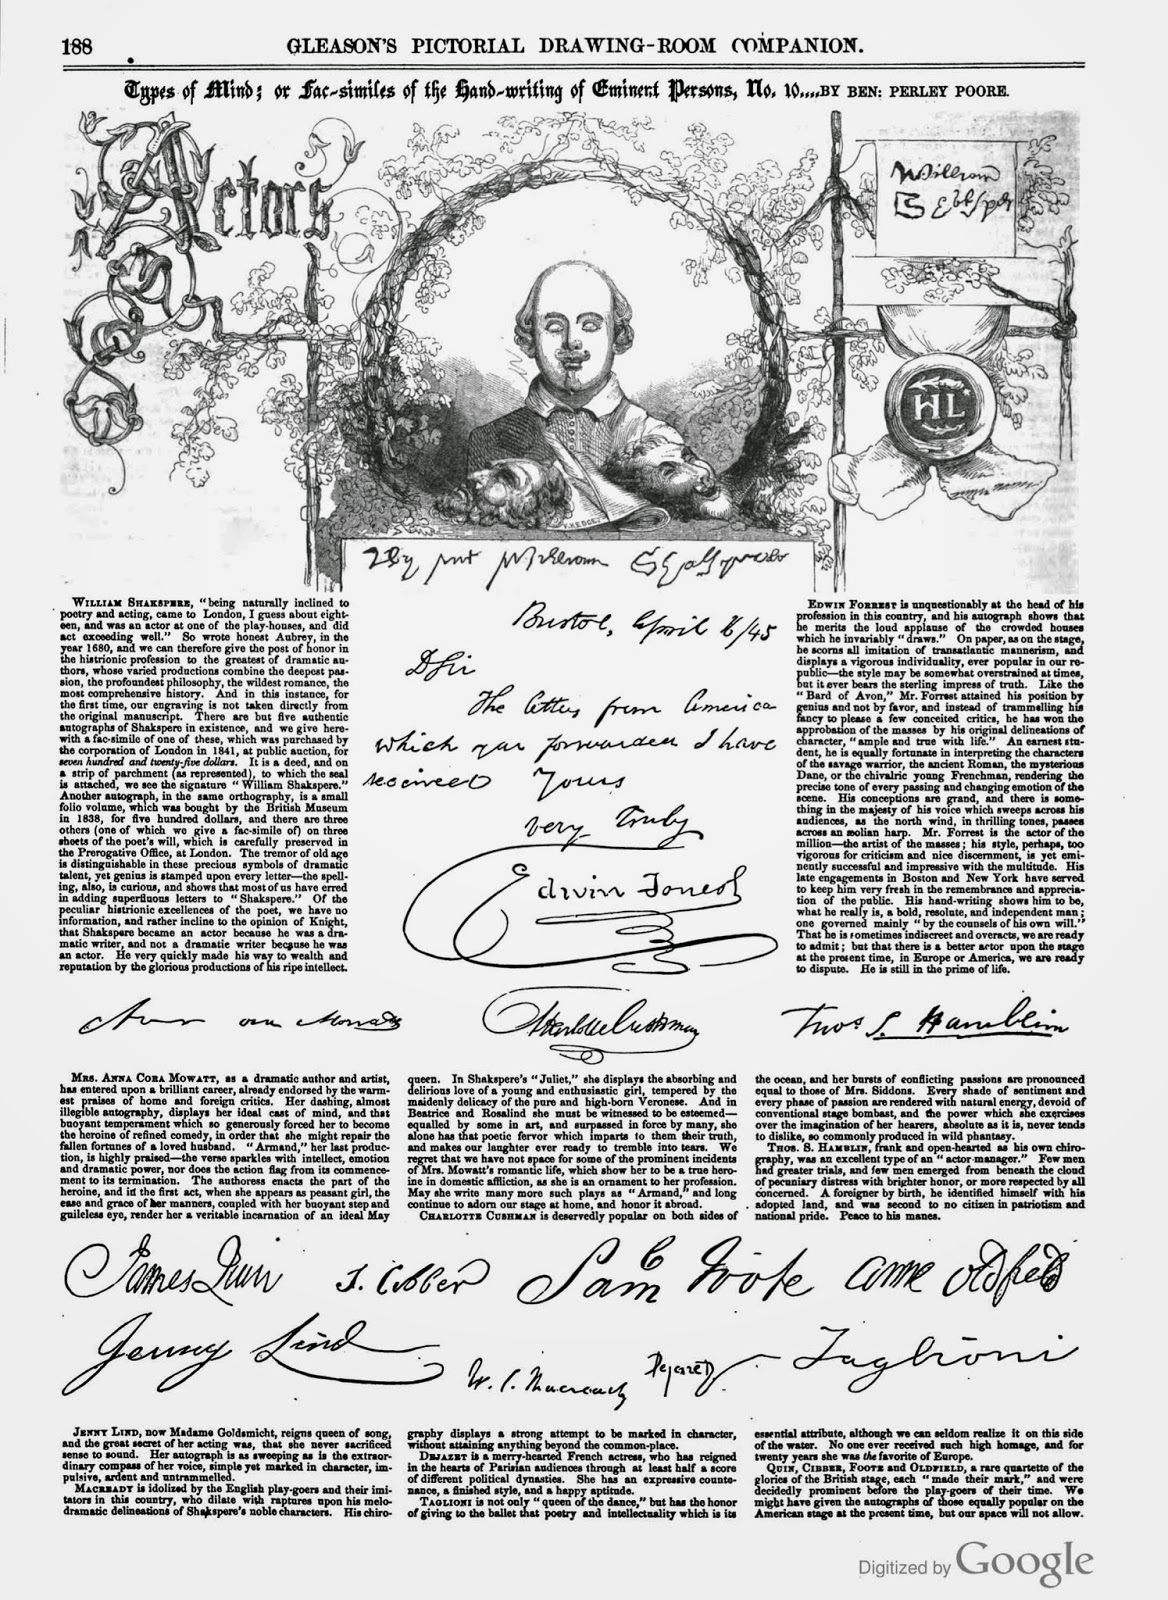 188
GLEASON'S PICTORIAL DRAWING-ROOM COMPANION.
Types of Mind; or Fac-similes of the Hand-writing of Eminent Persons, No. 10....BY BEN: PERLEY POORE.
Actors
William
HL
William
Bristol, April 16/45
D Sir
The letters from America
which you forwarded I have
received Yours
very truly
Edwin Forrest
WILLIAM SHAKSPERE, "being naturally inclined to
poetry and acting, came to London, I guess about eight-
een, and was an actor at one of the play-houses, and did
act exceeding well." So wrote honest Aubrey, in the
year 1680, and we can therefore give the post of honor in
the histrionic profession to the greatest of dramatic au-
thors, whose varied productions combine the deepest pas-
sion, the profoundest philosophy, the wildest romance, the
most comprehensive history. And in this instance, for
the first time, our engraving is not taken directly from
the original manuscript. There are but five authentic
autographs of Shakspere in existence, and we give here-
with a fac-simile of one of these, which was purchased by
the corporation of London in 1841, at public auction, for
seven hundred and twenty-five dollars. It is a deed, and on
a strip of parchment (as represented), to which the seal
is attached, we see the signature "William Shakspere."
Another autograph, in the same orthography, is a small
folio volume, which was bought by the British Museum
in 1838, for five hundred dollars, and there are three
others (one of which we give a fac-simile of) on three
sheets of the poet's will, which is carefully preserved in
the Prerogative Office, at London. The tremor of old age
is distinguishable in these precious symbols of dramatic
talent, yet genius is stamped upon every letter—the spell-
ing, also, is curious, and shows that most of us have erred
in adding superfluous letters to "Shakspere." Of the
peculiar histrionic excellences of the poet, we have no
information, and rather incline to the opinion of Knight,
that Shakspere became an actor because he was a dra-
matic writer, and not a dramatic writer because he was
an actor. He very quickly made his way to wealth and
reputation by the glorious productions of his ripe intellect.
EDWIN FORREST is unquestionably at the head of his
profession in this country, and his autograph shows that
he merits the loud applause of the crowded houses
which he invariably "draws." On paper, as on the stage,
he scorns all imitation of transatlantic mannerism, and
displays a vigorous individuality, ever popular in our re-
public—the style may be somewhat overstrained at times,
but it ever bears the sterling impress of truth. Like the
"Bard of Avon," Mr. Forrest attained his position by
genius and not by favor, and instead of trammelling his
fancy to please a few conceited critics, he has won the
approbation of the masses by his original delineations of
character, "ample and true with life." An earnest stu-
dent, he is equally fortunate in interpreting the characters
of the savage warrior, the ancient Roman, the mysterious
Dane, or the chivalric young Frenchman, rendering the
precise tone of every passing and changing emotion of the
scene. His conceptions are grand, and there is some-
thing in the majesty of his voice which sweeps across his
audiences, as the north wind, in thrilling tones, passes
across an æolian harp. Mr. Forrest is the actor of the
million—the artist of the masses; his style, perhaps, too
vigorous for criticism and nice discernment, is yet emi-
nently successful and impressive with the multitude. His
late engagements in Boston and New York have served
to keep him very fresh in the remembrance and apprecia-
tion of the public. His hand-writing shows him to be,
what he really is, a bold, resolute, and independent man;
one governed mainly "by the counsels of his own will."
That he is sometimes indiscreet and overacts, we are ready
to admit; but that there is a better actor upon the stage
at the present time, in Europe or America, we are ready
to dispute. He is still in the prime of life.
Anna Cora Mowatt
Charlotte Cushman
Thos. S. Hamblin
MRS. ANNA CORA MOWATT, as a dramatic author and artist,
has entered upon a brilliant career, already endorsed by the warm-
est praises of home and foreign critics. Her dashing, almost
illegible autography, displays her ideal cast of mind, and that
buoyant temperament which so generously forced her to become
the heroine of refined comedy, in order that she might repair the
fallen fortunes of a loved husband. "Armand," her last produc-
tion, is highly praised—the verse sparkles with intellect, emotion
and dramatic power, nor does the action flag from its commence-
ment to its termination. The authoress enacts the part of the
heroine, and in the first act, when she appears as peasant girl, the
ease and grace of her manners, coupled with her buoyant step and
guileless eye, render her a veritable incarnation of an ideal May
queen. In Shakspere's "Juliet," she displays the absorbing and
delirious love of a young and enthusiastic girl, tempered by the
maidenly delicacy of the pure and high-born Veronese. And in
Beatrice and Rosalind she must be witnessed to be esteemed—
equalled by some in art, and surpassed in force by many, she
alone has that poetic fervor which imparts to them their truth,
and makes our laughter ever ready to tremble into tears. We
regret that we have not space for some of the prominent incidents
of Mrs. Mowatt's romantic life, which show her to be a true hero-
ine in domestic affliction, as she is an ornament to her profession.
May she write many more such plays as "Armand," and long
continue to adorn our stage at home, and honor it abroad.
CHARLOTTE CUSHMAN is deservedly popular on both sides of
the ocean, and her bursts of conflicting passions are pronounced
equal to those of Mrs. Siddons. Every shade of sentiment and
every phase of passion are rendered with natural energy, devoid of
conventional stage bombast, and the power which she exercises
over the imagination of her hearers, absolute as it is, never tends
to dislike, so commonly produced in wild phantasy.
THOS. S. HAMBLIN, frank and open-hearted as his own chiro-
graphy, was an excellent type of an "actor-manager." Few men
had greater trials, and few men emerged from beneath the cloud
of pecuniary distress with brighter honor, or more respected by all
concerned. A foreigner by birth, he identified himself with his
adopted land, and was second to no citizen in patriotism and
national pride. Peace to his manes.
James Quin
Cibber
Sam Foote
Anne Oldfield
Jenny Lind
W. C. Macready
Dejazet
Taglioni
JENNY LIND, now Madame Goldsmicht, reigns queen of song,
and the great secret of her acting was, that she never sacrificed
sense to sound. Her autograph is as sweeping as is the extraor-
dinary compass of her voice, simple yet marked in character, im-
pulsive, ardent and untrammelled.
MACREADY is idolized by the English play-goers and their imi-
tators in this country, who dilate with raptures upon his melo-
dramatic delineations of Shakspere's noble characters. His chiro-
graphy displays a strong attempt to be marked in character,
without attaining anything beyond the common-place.
DEJAZET is a merry-hearted French actress, who has reigned
in the hearts of Parisian audiences through at least half a score
of different political dynasties. She has an expressive counte-
nance, a finished style, and a happy aptitude.
TAGLIONI is not only "queen of the dance," but has the honor
of giving to the ballet that poetry and intellectuality which is its
essential attribute, although we can seldom realize it on this side
of the water. No one ever received such high homage, and for
twenty years she was the favorite of Europe.
QUIN, CIBBER, FOOTE and OLDFIELD, a rare quartette of the
glories of the British stage, each "made their mark," and were
decidedly prominent before the play-goers of their time. We
might have given the autographs of those equally popular on the
American stage at the present time, but our space will not allow.
Digitized by Google